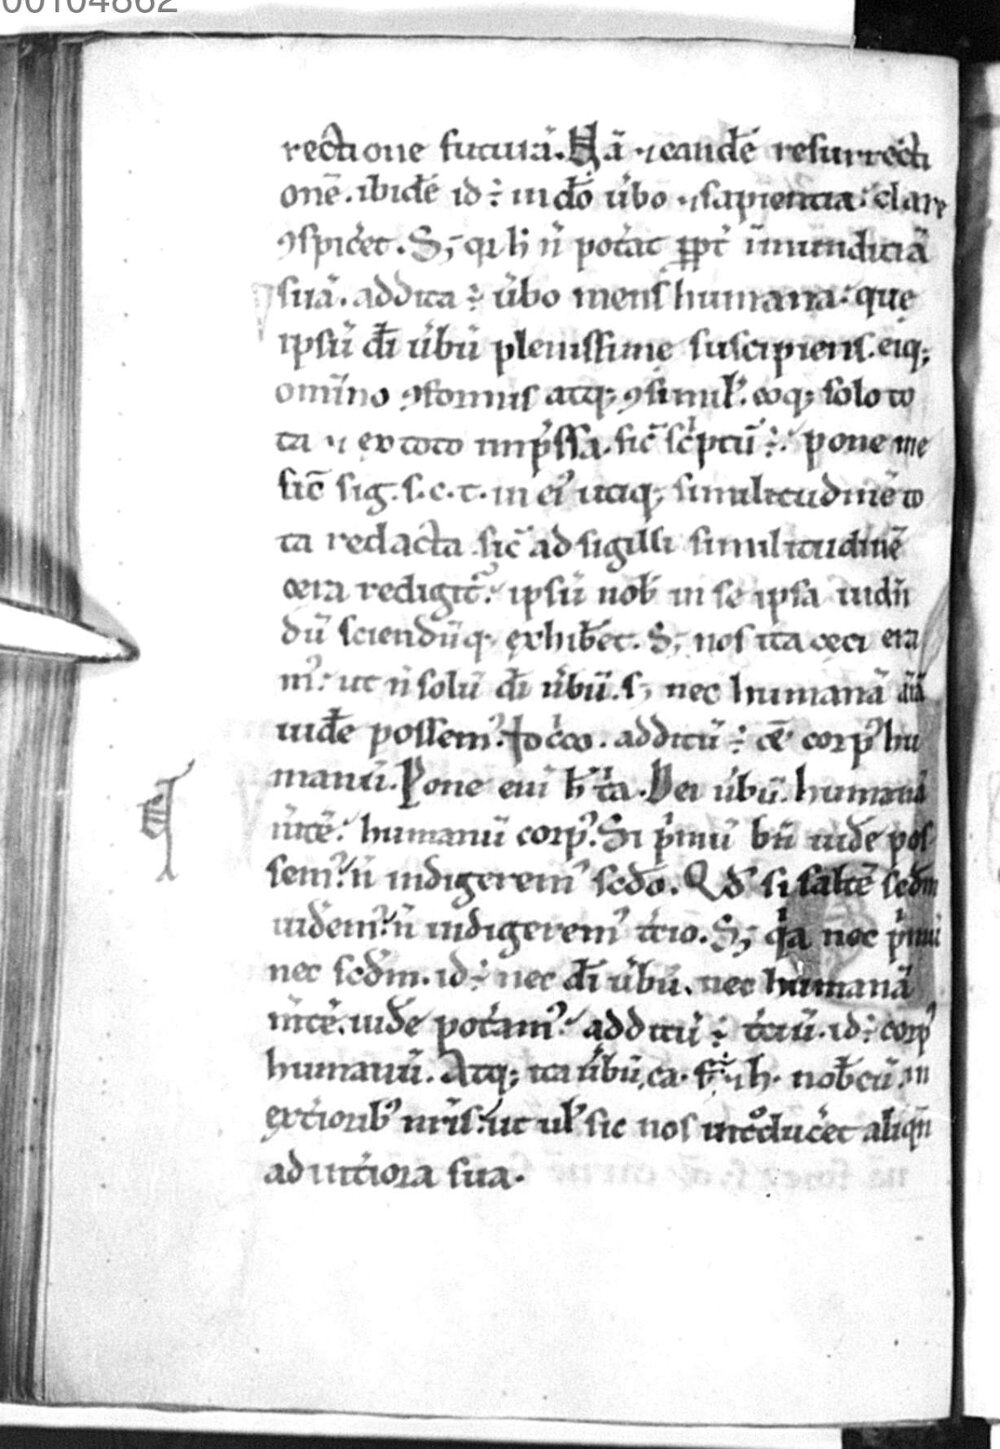 00104862
rectione futura. Nā ⁊ eandē resurrecti
onē. ibidē id ÷ in dō ūbo ⁊ sapientia clare
ꝯspicet. S; qͥ h̄ n̄ potat ꝓpt̄ inmundiciā
suā. addita ÷ ūbo mens humana. que
ipsū dī ūbū plenissime suscipiens. eiq;
omīno ꝯformis atq; ꝯsimil'. eoq; solo to
ta ⁊ ex toto imp̄ssa. sic̄ sc̄ptū ÷. pone me
sic̄ sig. s. c. t. in eiꝰ utiq; similitudinē to
ta redacta sic̄ ad sigilli similitudinē
cera redigit᷑. ipsū nob̄ in se ipsa uidn̄
dū sciendūq. exhibet. S; nos ita ceci era
mꝰ. ut n̄ solū dī ūbū. s; nec humanā
uidē possemꝰ. Iccō. additū ÷ & corpꝰ hu
manū. Pone eni h̄ tͥa. Dei ūbū. humanā
m̄tē. humanū corpꝰ. Si p̄mū bn̄ uidē pos
semꝰ. n̄ indigeremꝰ scdō. Qd̄ si saltē scdm̄
uidēmꝰ. n̄ indigeremꝰ t̄cio. S; qͥa nec p̄mū
nec scdm̄. id ÷ nec dī ūbū. nec humanā
m̄tē. uidē potamꝰ. additū ÷ t̄ciū. id ÷ corpꝰ
humanū. Atq; ita ūbū ca. nob̄cū. in
ext̄ioribꝰ nr̄is. ut ul' sic nos int̄oducet aliqn̄
ad int̄iora sua.